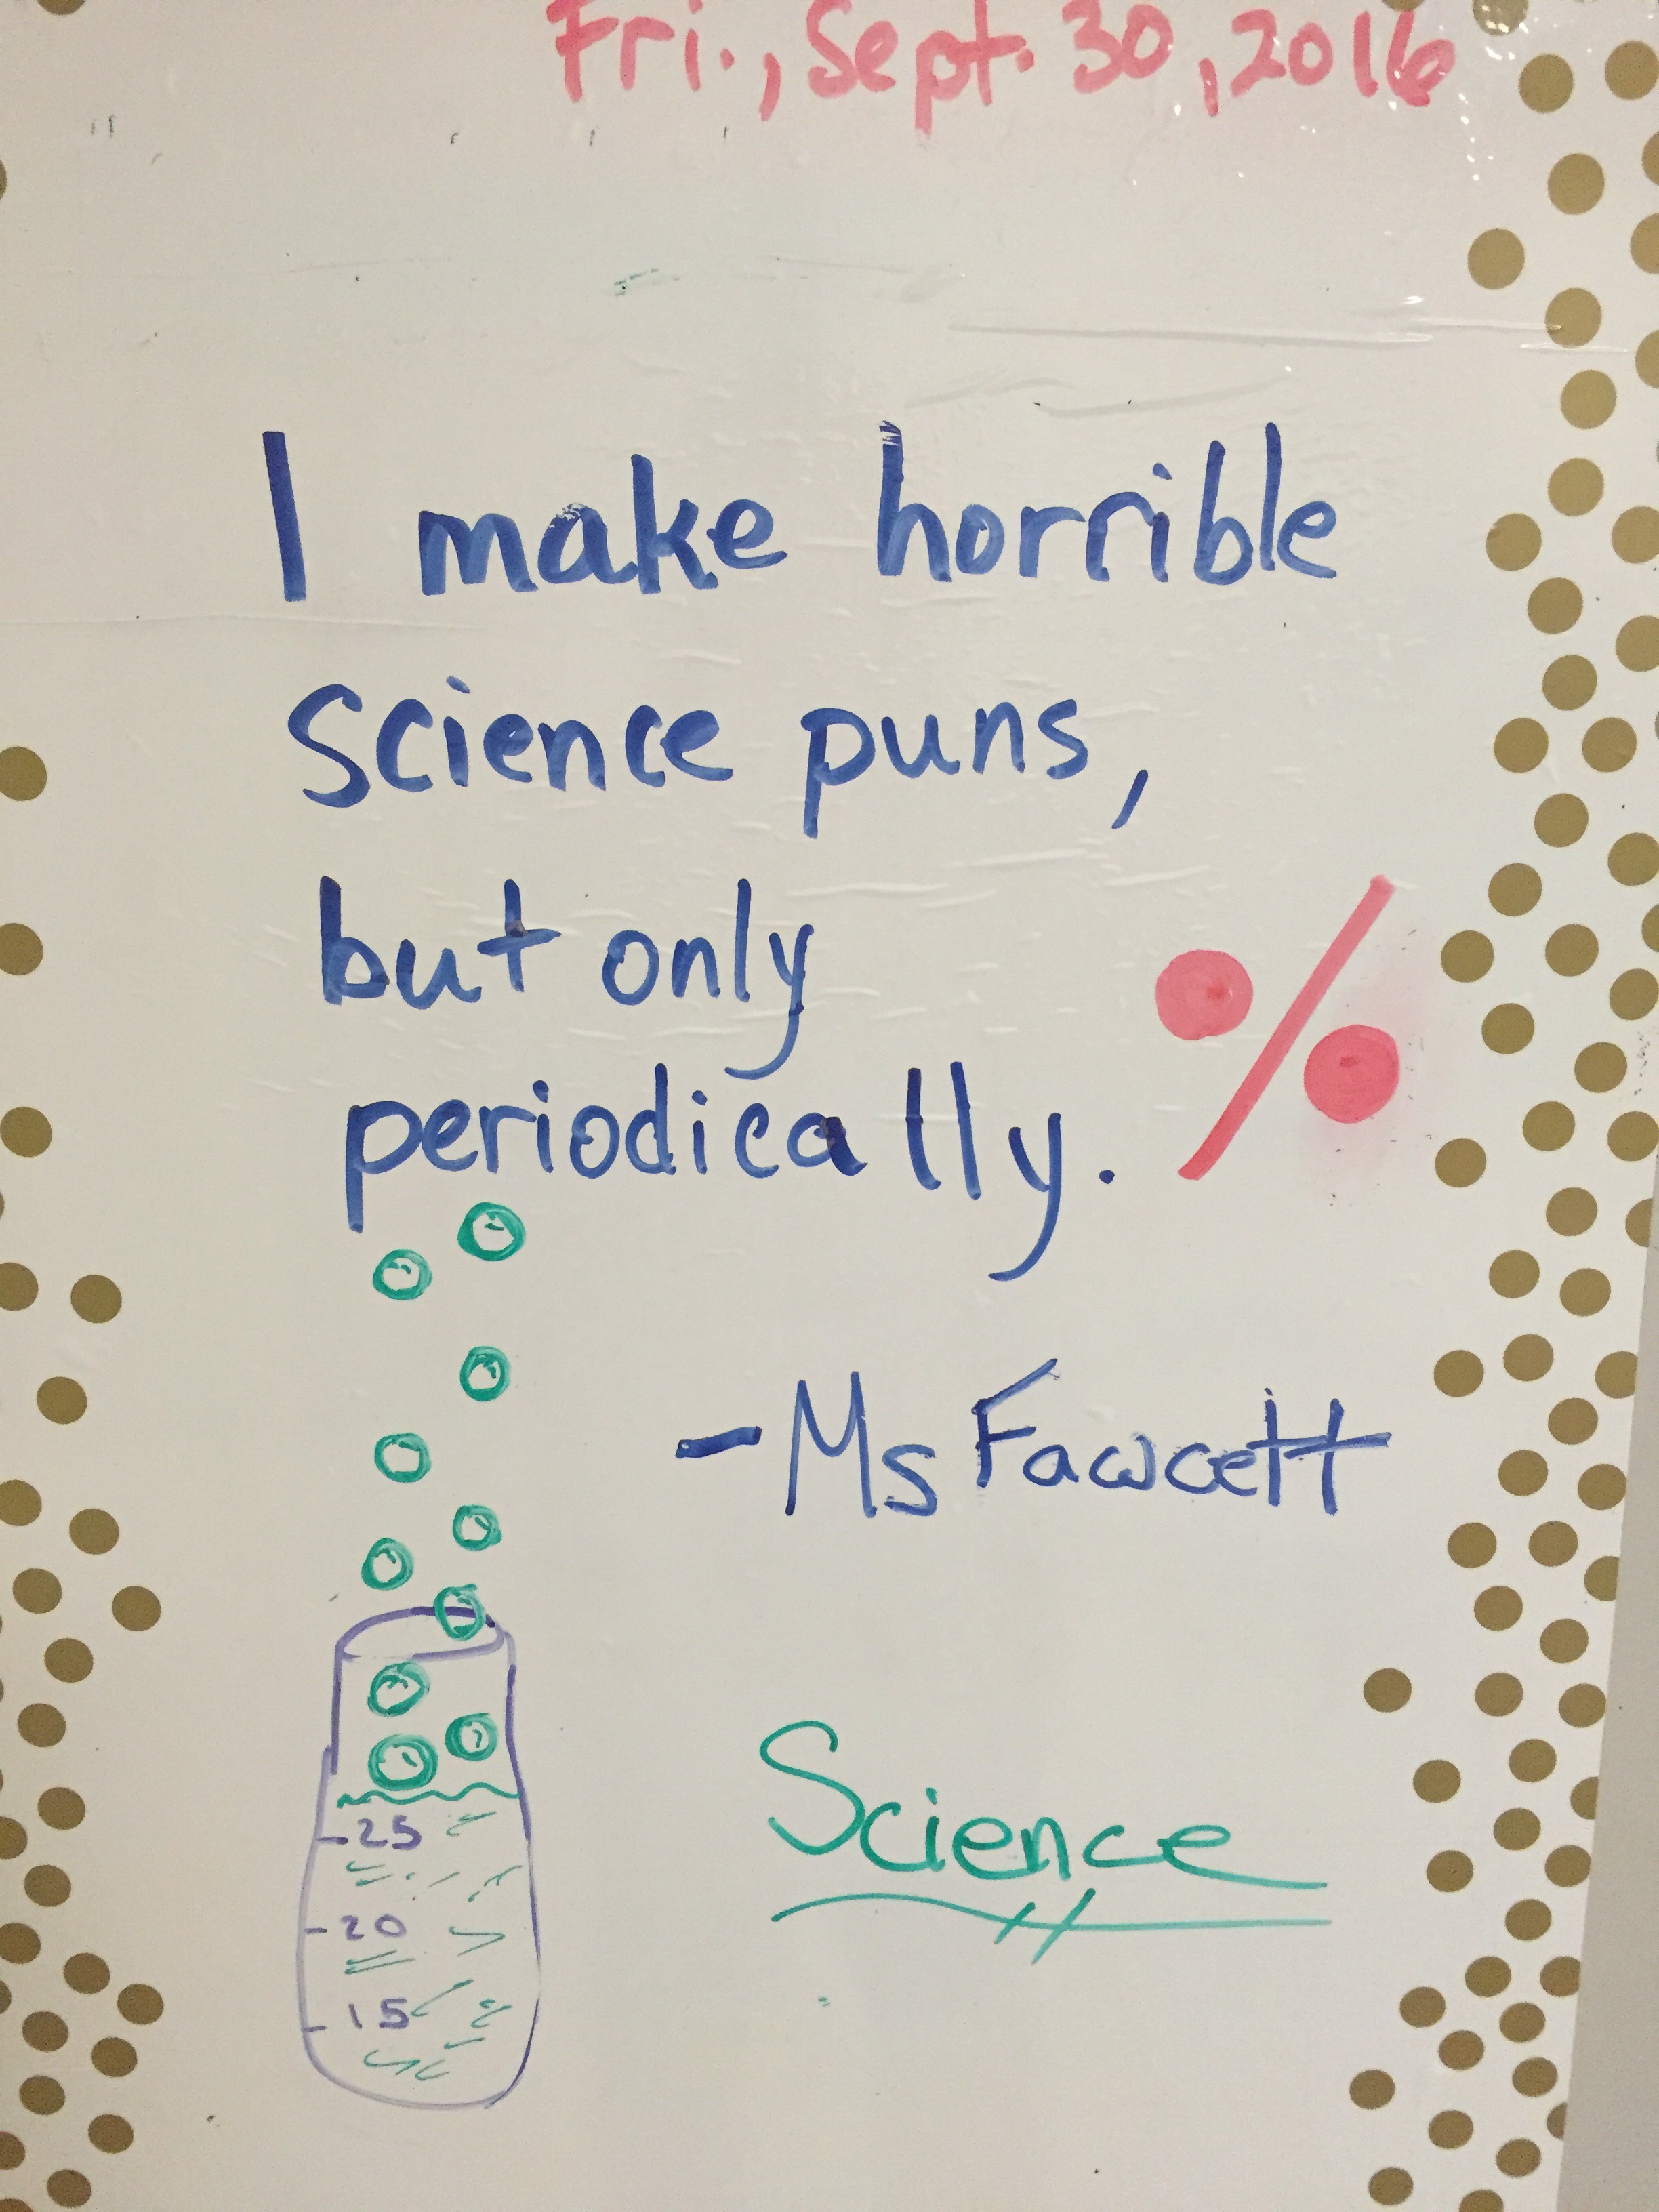 Fri., Sept. 30, 2016
I make horrible
Science puns,
but only
periodically.
%
-Ms Fawcett
Science
25
20
15